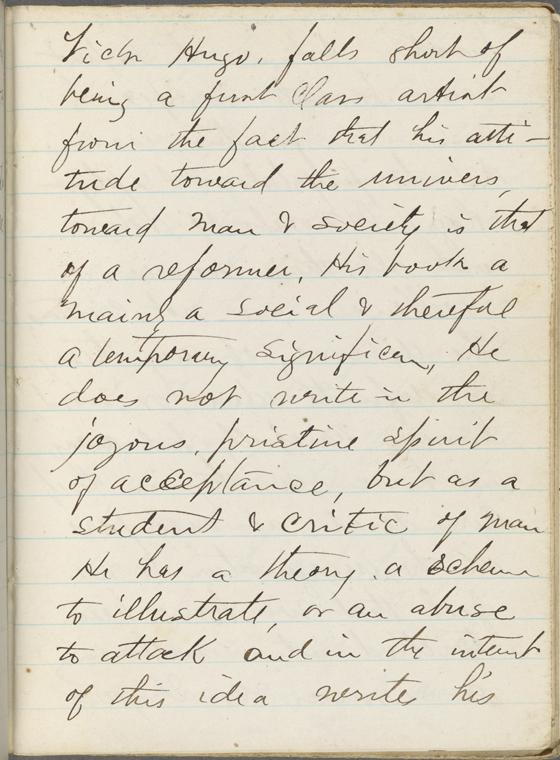 Victor Hugo, falls short of
being a first class artist
from the fact that his atti-
tude toward the univers,
toward man & society is that
of a reformer, His book a
mainly a social & therefore
a temporary significan, He
does not write in the
joyous, pristine spirit
of acceptance, but as a
student & critic of man
He has a theory, a scheme
to illustrate, or an abuse
to attack and in the interest
of this idea writes his